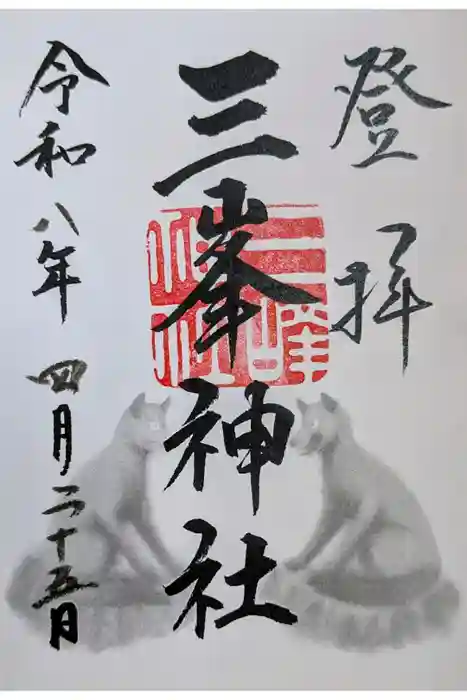 登拝
三峯神社
令和八年四月二十五日
三峯神社